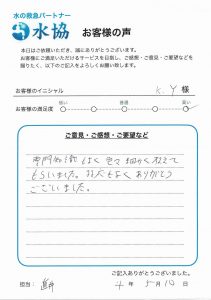 水の救急パートナー
水協 お客様の声
本日はご依頼いただき、誠にありがとうございます。
お客様にご満足いただけるサービスを目指し、ご感想・ご意見・ご要望などを
賜りたく、以下のご記入をよろしくお願い致します。
お客様のイニシャル K.Y 様
低い 普通 高い
お客様の満足度
ご意見・ご感想・ご要望など
専門知識 細かく教えて
もらいました。 ありがとう
ございました。
ご記入ありがとうございました。
担当: 4年 5月10日